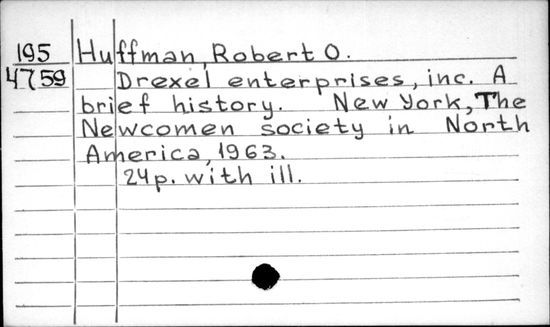 195 Huffman, Robert O.
4759 Drexel enterprises, inc. A
brief history. New York, The
Newcomen society in North
America, 1963.
24p. with ill.